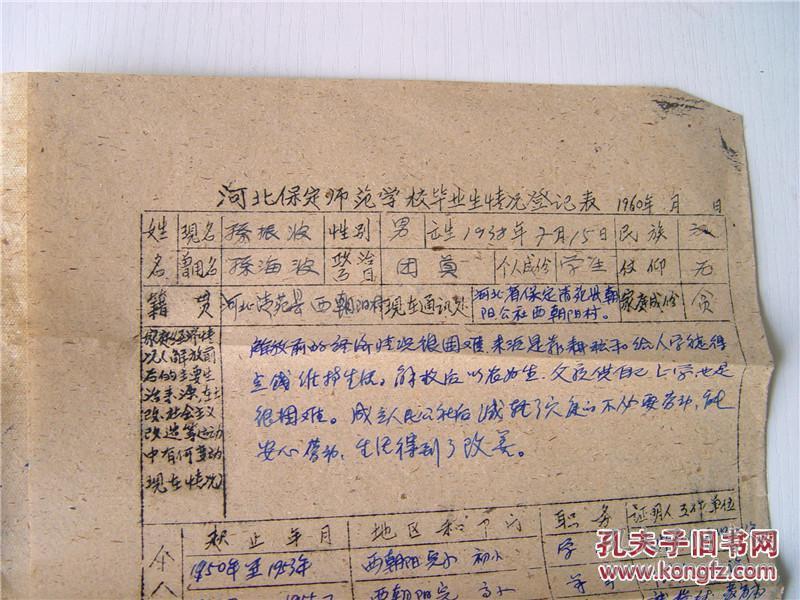 河北保定师范学校毕业生情况登记表 1960年 月 日
姓名 现名 孫振波 性别 男 出生 1938年7月15日 民族 汉
曾用名 孫海波 政治面目 团員 个人成份 学生 信仰 无
籍贯 河北清苑县西朝阳村 现在通讯处 河北省保定清苑县朝阳公社西朝阳村。 家庭成份 贫
家庭经济情况(解放前后的主要生活来源,在土改,社会主义改造等运动中有何变动 现在情况)
解放前的经济情况很困难来源是靠耕种和给人字 得
点钱维持生活。解放后以农为生,父 供自己上学也是
很困难。成立人民公社后减轻了 不必要劳动,能
安心劳动,生活得到了改善。
个人 起止年月 地区和 职务 证明人工作单位
1950年至1953年 西朝阳完小 初小 学
西朝阳完 高小 学
孔夫子旧书网
www.kongfz.com